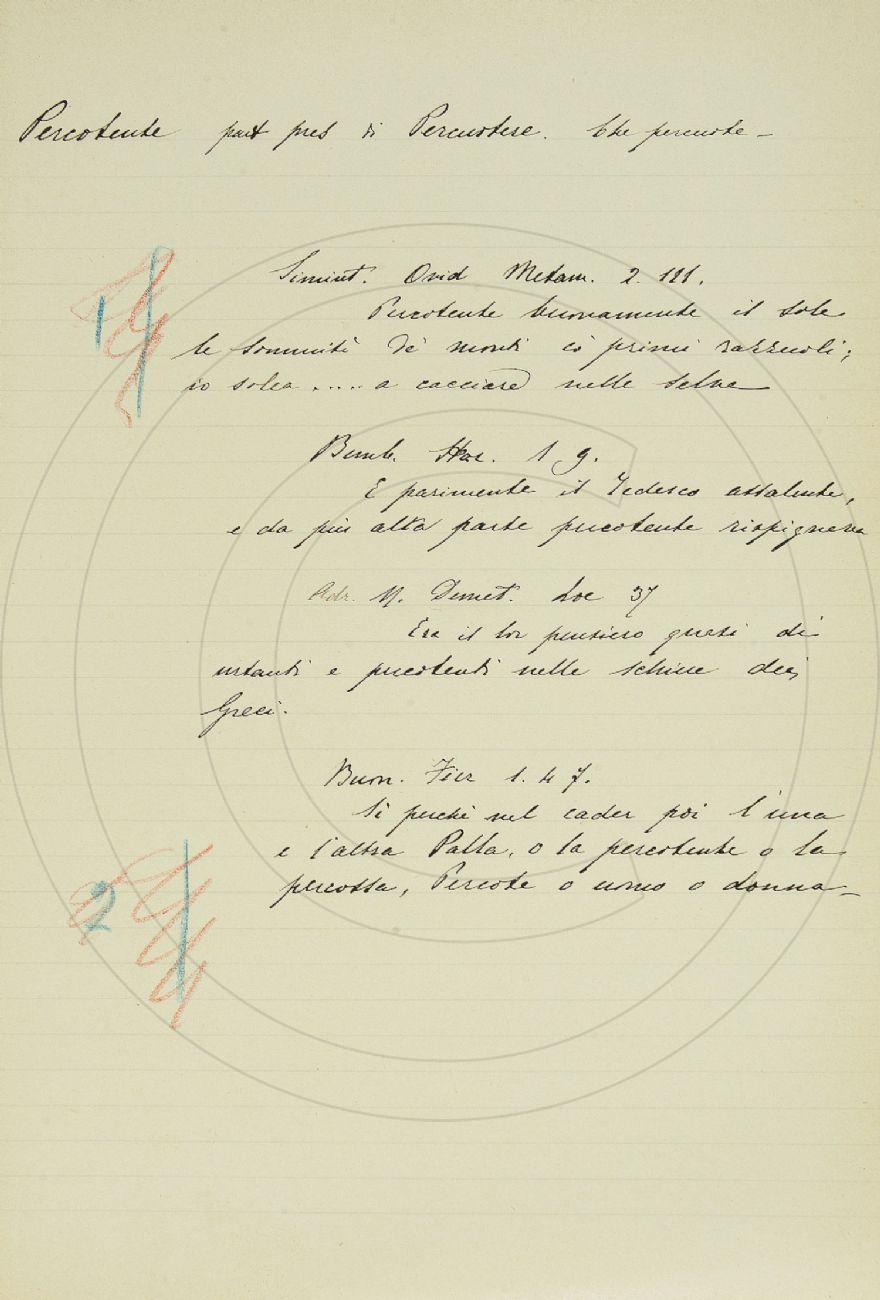 Percotente part pres di Percuotere. Che percuote –
Simint. Ovid Metam. 2. 111.
Percotente buonamente il sole
le sommità de' monti co' primi razzuoli;
io solea .... a cacciare nelle selve –
Bemb. Stor. 1 9.
E parimente il Tedesco assalente,
e da più alta parte percotente rispigneva
Adr. M. Demet. Loc 37
Era il lor pensiero quasi di
urtanti e percotenti nelle schiere dei
Greci.
Buon. Fier 1. 4 7.
Sì perchè nel cader poi l'una
e l'altra Palla, o la percotente o la
percossa, Percote o uomo o donna –
1
2